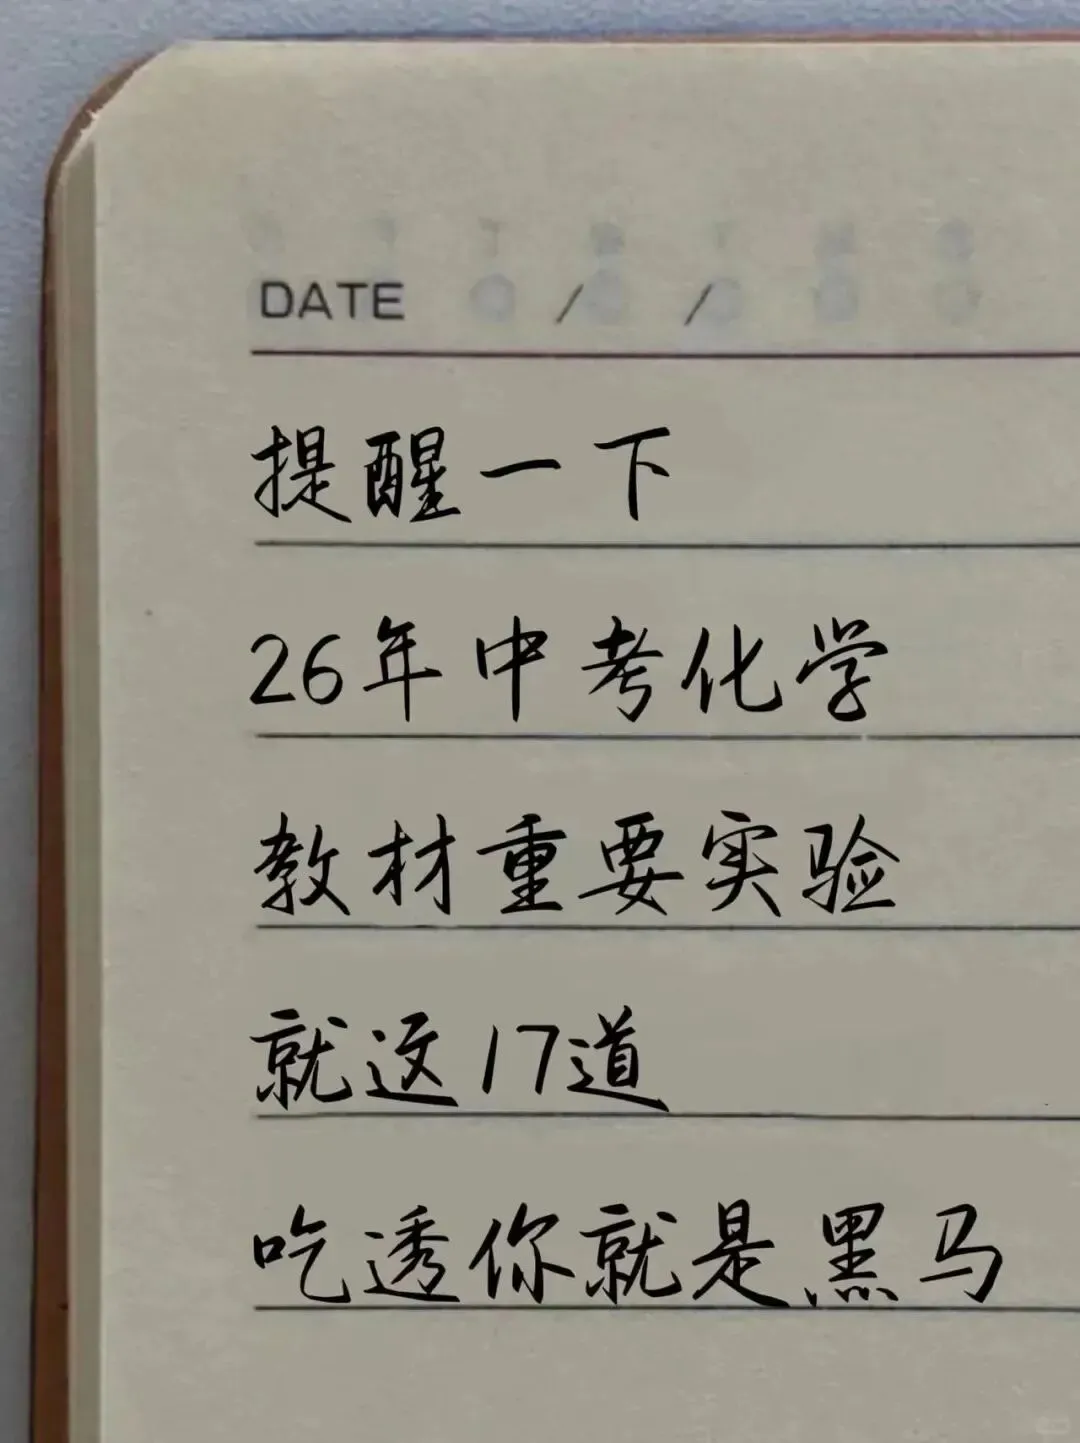 DATE / /
提醒一下
26年中考化学
教材重要实验
就这17道
吃透你就是黑马